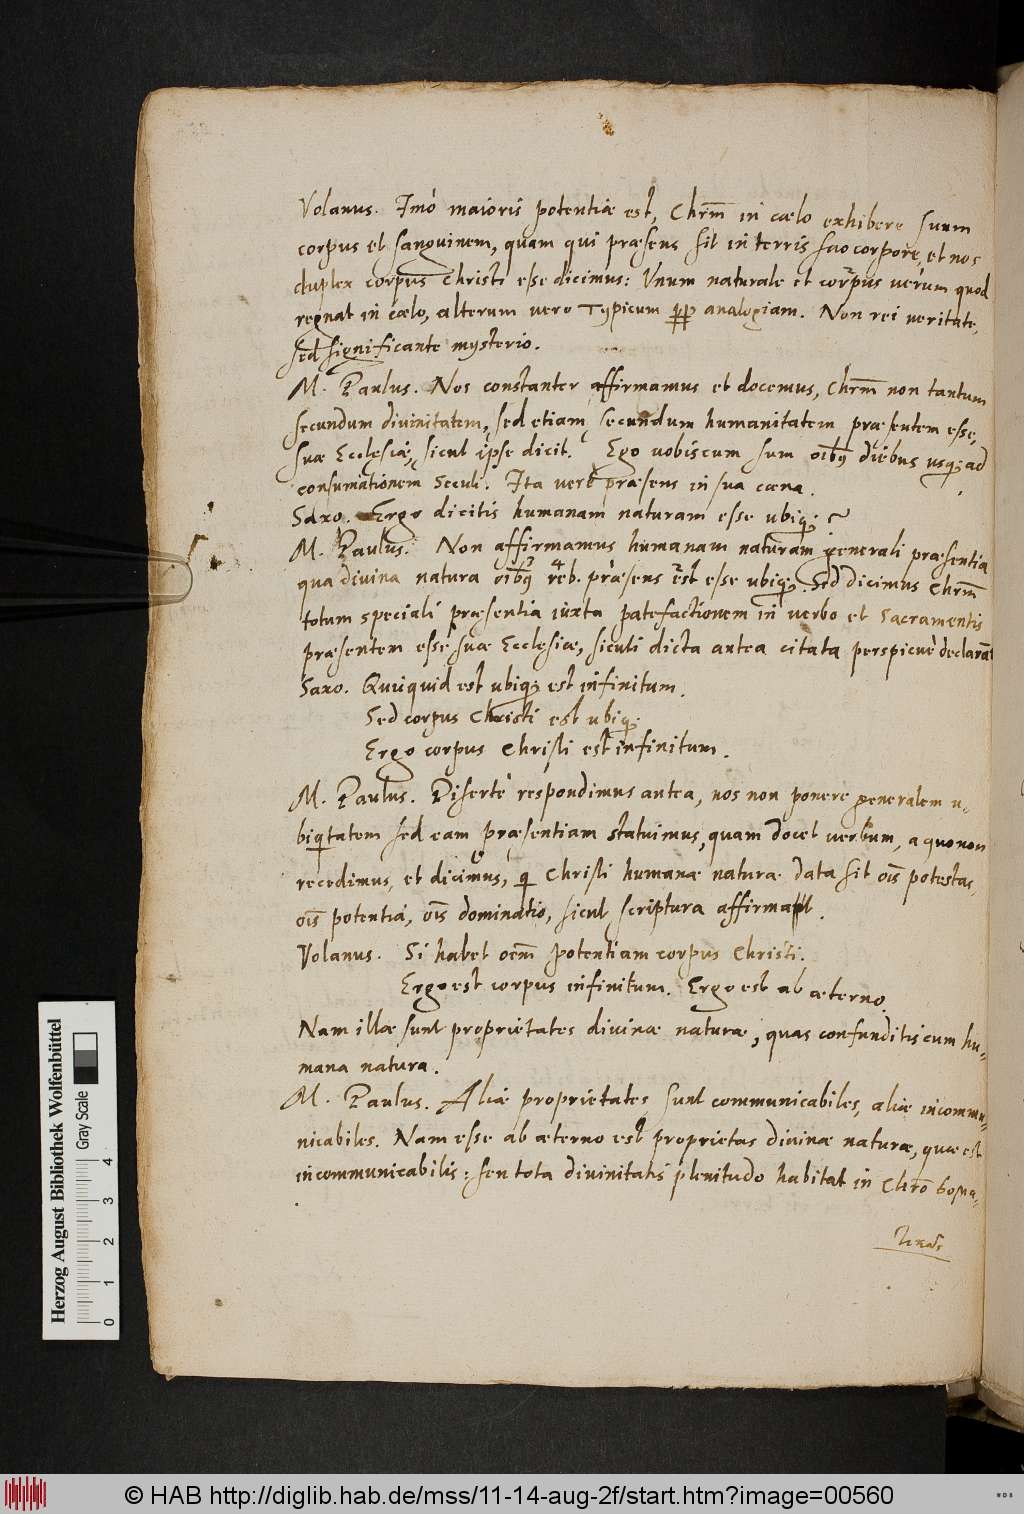 Volanus. Imò maioris potentiæ est, Chrm̄ in cælo exhibere suum
corpus et sanguinem, quam qui præsens sit in terris suo corpore, et nos
duplex corpus Christi esse dicimus: Unum naturale et corpus verum quod
regnat in cælo, alterum vero Typicum analogiam. Non rei veritate,
sed significante mysterio.
M. Paulus. Nos constanter affirmamus et docemus, Chrm̄ non tantum
secundum divinitatem, sed etiam secundum humanitatem præsentem esse,
suæ Ecclesiæ, sicut ipse dicit. Ego vobiscum sum oībꝰ diebus usq; ad
consumationem seculi. Ita verè præsens in sua cæna.
Saxo. Ergo dicitis humanam naturam esse ubiq; ?
M. Paulus. Non affirmamus humanam naturam generali præsentia
qua divina natura oībꝰ reb. præsens est esse ubiq;. Sed dicimus Chrm̄
totum speciali præsentia iuxta patefactionem in verbo et Sacramentis
præsentem esse suæ Ecclesiæ, sicuti dicta antea citata perspicuè declarāt
Saxo. Quicquid est ubiq; est infinitum.
Sed corpus Christi est ubiq;
Ergo corpus Christi est infinitum.
M. Paulus. Disertè respondimus antea, nos non ponere generalem u-
biqtatem sed eam præsentiam statuimus, quam docet verbum, a quo non
recedimus, et dicimus, q Christi humanæ naturæ data sit oīs potestas,
oīs potentia, oīs dominatio, sicut scriptura affirmat.
Volanus. Si habet oēm potentiam corpus Christi.
Ergo est corpus infinitum. Ergo est ab æterno.
Nam illæ sunt proprietates divinæ naturæ, quas confunditis cum hu-
mana natura.
M. Paulus. Aliæ proprietates sunt communicabiles, aliæ incommu-
nicabiles. Nam esse ab æterno est proprietas divinæ naturæ, quæ est
incommunicabilis: sen tota divinitatis plenitudo habitat in Chrō σομα-
τικῶς
Herzog August Bibliothek Wolfenbüttel
Gray Scale
0 1 2 3 4
© HAB http://diglib.hab.de/mss/11-14-aug-2f/start.htm?image=00560